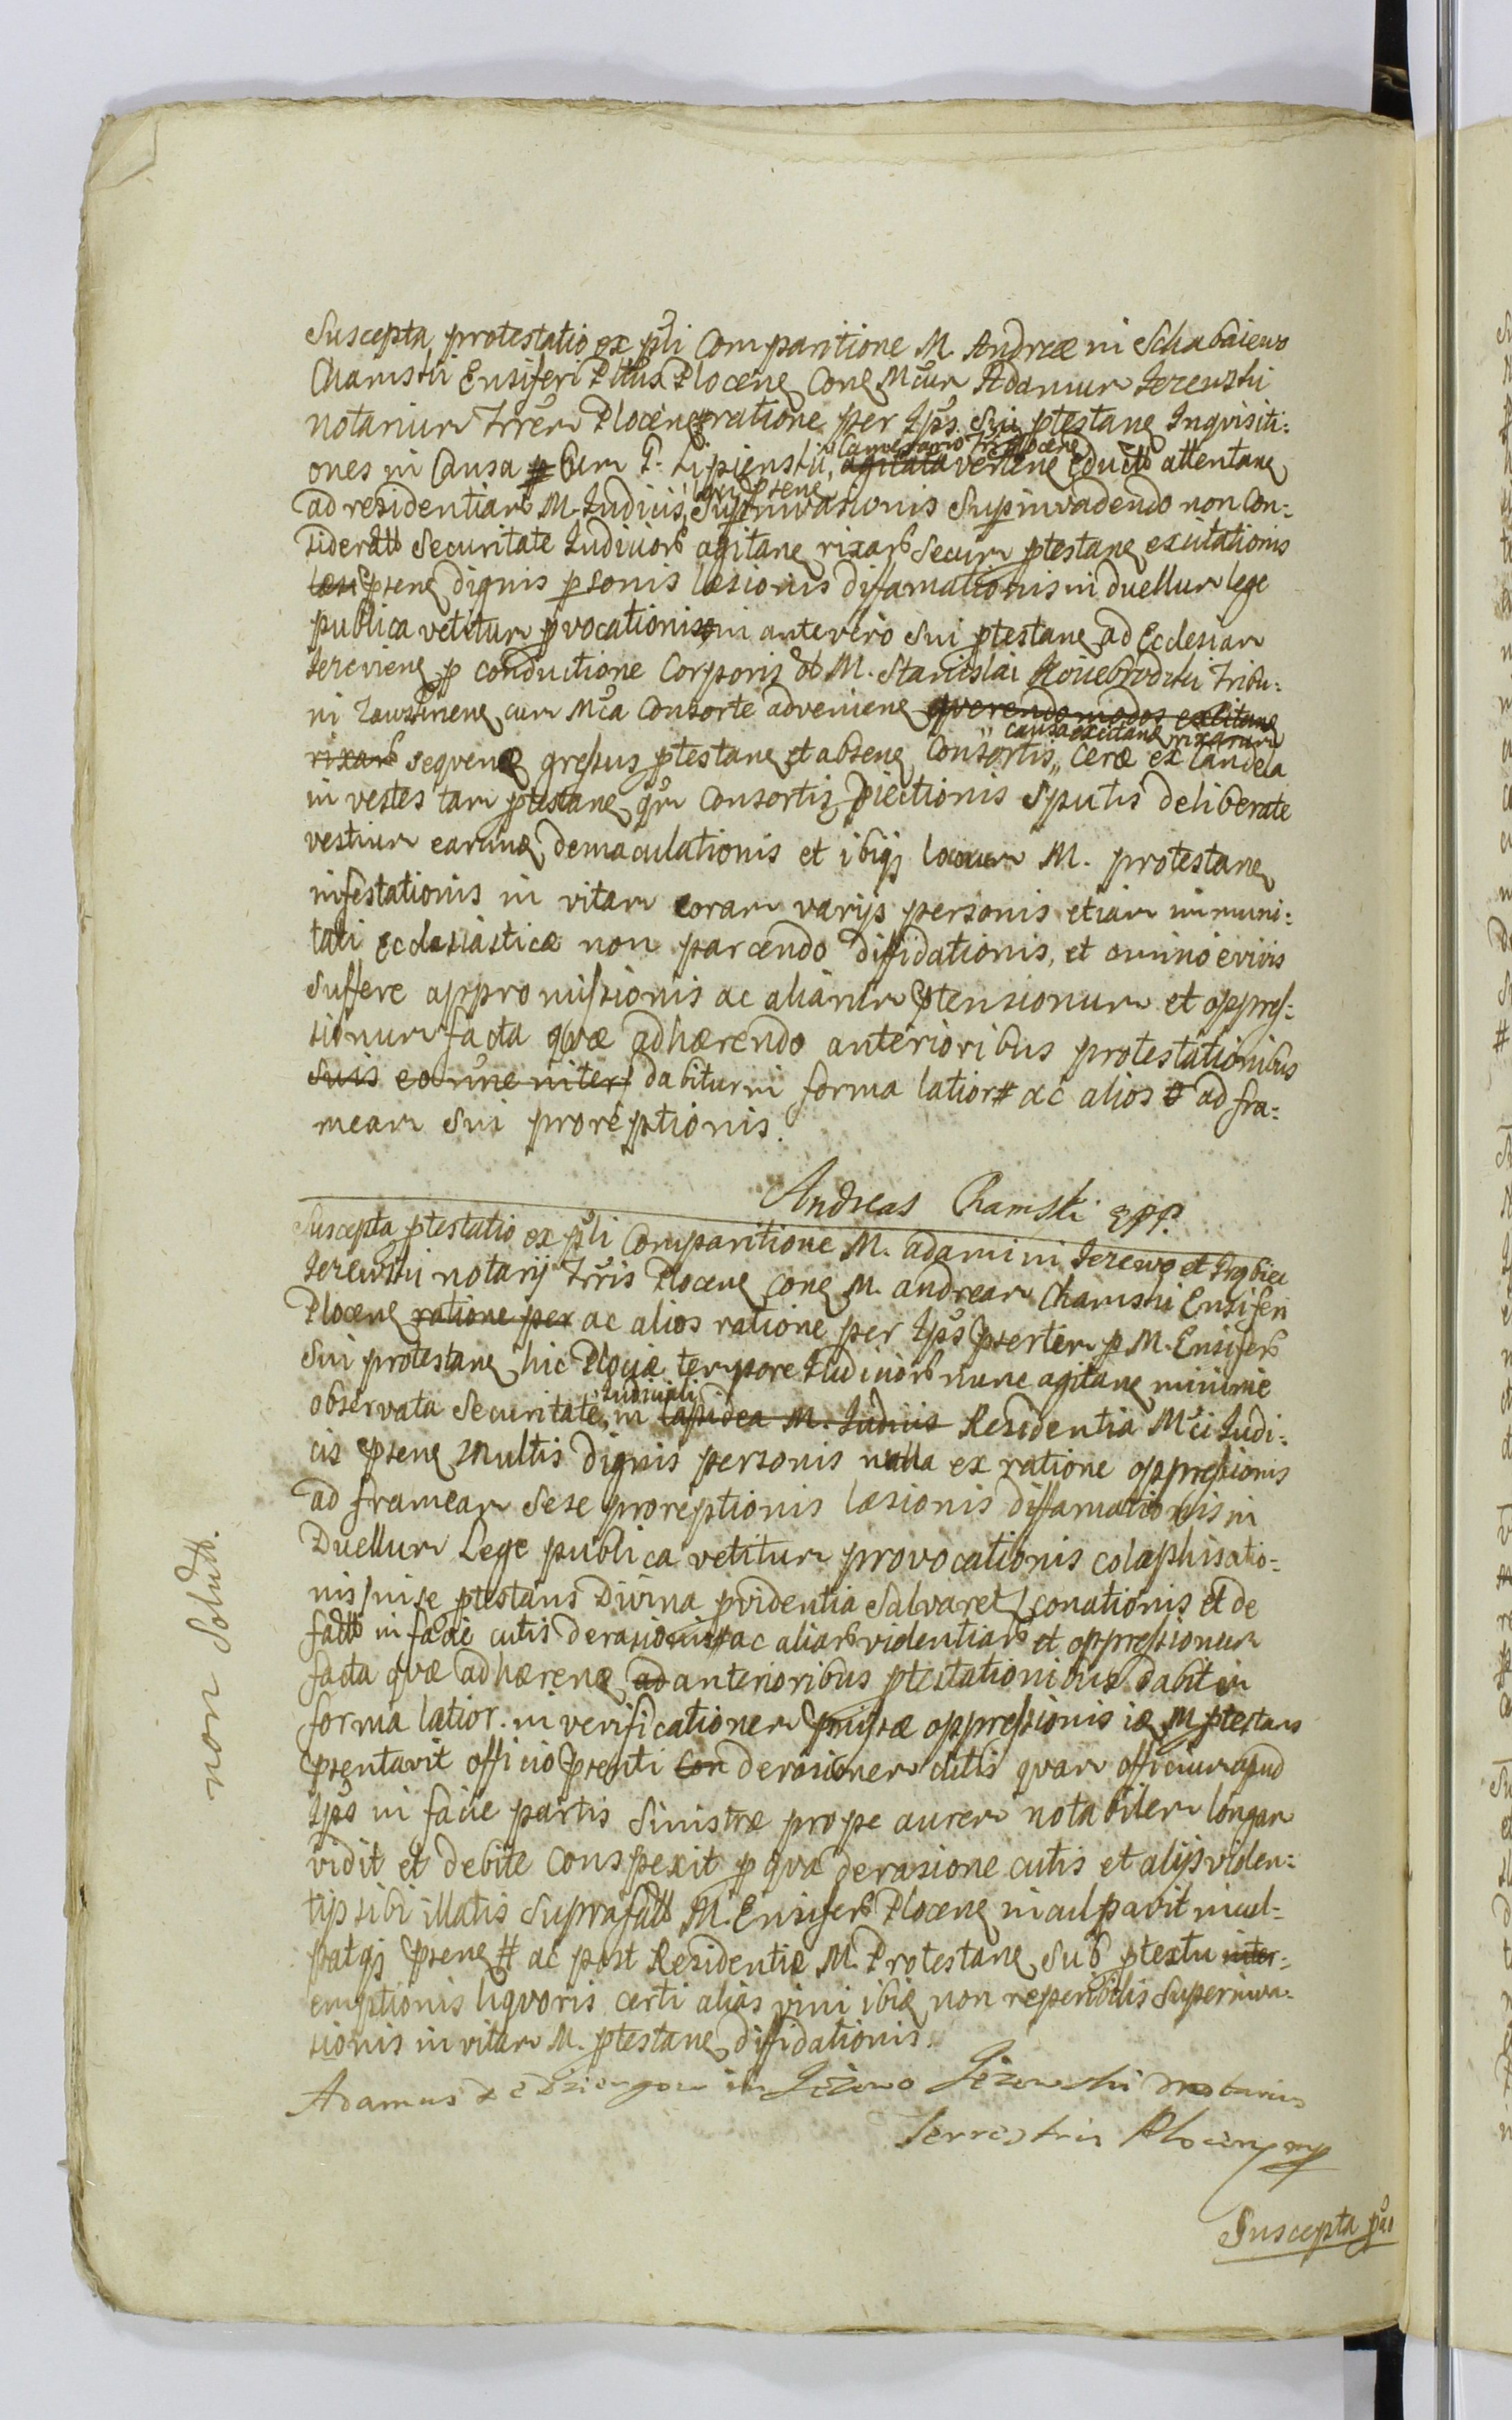 Suscepta protestatio ex p̃li Comparitione M. Andreæ in Schabaiewo
Chamski Ensiferi Plocenȩ Conȩ Mcũm Adamum Jezewski
notarium Trr̃em Plocenȩ ratione per Ips̃ Sui ptestanȩ Inqvisiti:
ones in Causa Cum G. Lipienski, Camerario Plocenȩ agitata vertenȩ educto attentanȩ
ad residentiam M. Iudicis, Supinvasionis Supinvadendo non Con:
siderata Securitate Iudiciorum agitanȩ rixarum secum ptestanȩ excitationis
læsi psenȩ dignis psonis læsionis difamationis in duellum lege
publica vetitum pvocationis in ante vero Sui ptestanȩ ad Ecclesiam
Jezevienȩ p conductione Corporis M. Stanislai Tribu:
ni cum Mc̃a Consorte advenienȩ qverendo modos exitanȩ
causa excitanȩ rixarum
rixarum seqvenȩ gressus ptestanȩ et absenȩ Consortis,, Ceræ ex Candela
in vestes tam ptestanȩ qm̃ Consortis pjectionis Sputis deliberate
vestium earumȩ demaculationis et ibiqȝ locum M. protestanȩ
infestationis in vitam coram varijs personis etiam immuni:
tati Ecclesiasticæ non parcendo diffidationis, et omnino e vivis
Suffere appromissionis ac aliarum ptensionum et oppres:
sionum facta qvæ adhærendo anterioribus protestationibus
Suis dabitur in forma latior# ac alios ad fra:
meam Sui proreptionis.
Andreas Chamski mpp.
Suscepta ptestatio ex p̃li Comparitione M. adami in Jezewo et
Jezewski notarij Trr̃is Plocenȩ Conȩ M. andream Chamski Ensiferi
Plocenȩ ratione per ac alios ratione per Ips̃ psertim p M. Ensiferum
Sui protestanȩ hic Plociæ tempore Iudiciorum nunc agitanȩ minime
observata Securitate, Iudiciali in lapidea M. Iudicis Residentia Mc̃i Iudi:
cis psenȩ multis dignis personis nulla ex ratione oppressionis
ad frameam Sese proreptionis læsionis diffamationis in
Duellum Lege publica vetitum provocationis colaphisatio:
nis ni se ptestans Divina pvidentia Salvaret conationis et de
facto in facie cutis derasionis# ac aliarum videntiarum et oppressionum
facta qvæ adhærenȩ ad anterioribus ptestationibus dabit in
forma latior. in verificationem pmissæ oppressionis M. ptestans
psentavit officio psenti Con derasionem cutis qvam officium apud
Ips̃ in facie partis Sinistræ prope aurem notabilem longam
vidit et debite Conspexit p qva derasione cutis et alijs viden:
tijs sibi illatis Suprafatt M. Ensiferum Plocenȩ inculpavit incul=
patqȝ psenȩ # ac post Residentiæ M. Protestanȩ Sub ptextu inter=
emptionis liqvoris certi alias vini ibiȩ non reperibilis Superinva:
sionis in vitam M. ptestanȩ diffidationis.
Adamus in Jezewo Jezewski Notarius
Terrestris Plocen mpp
Suscepta
non Solutt.